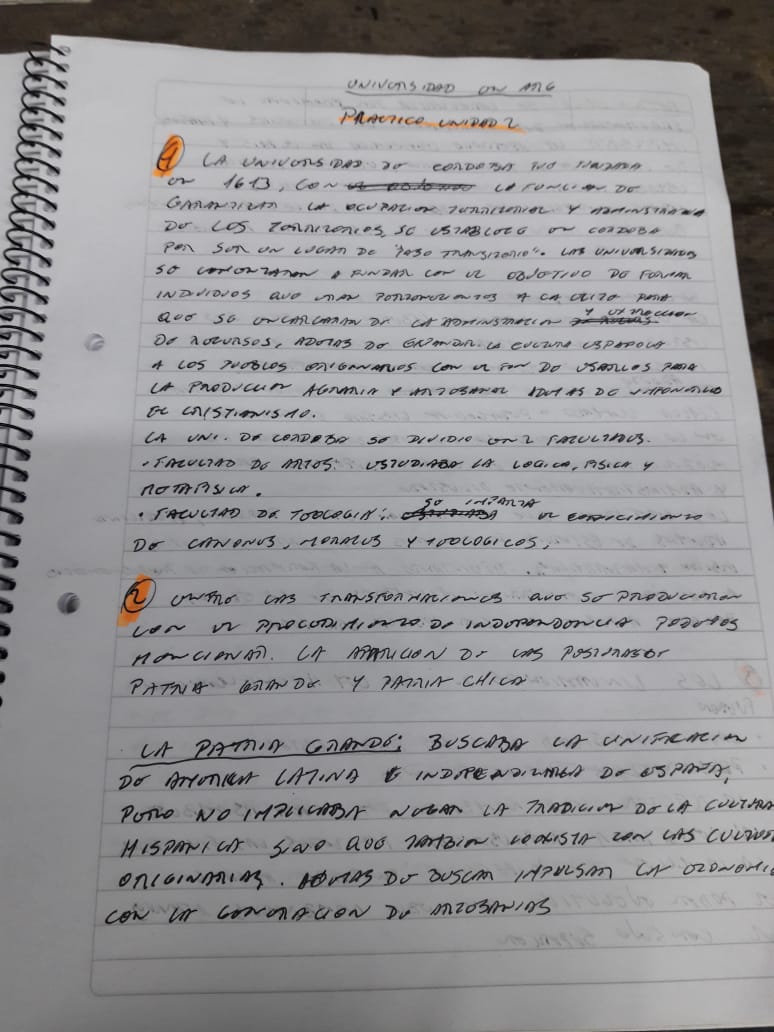 UNIVERSIDAD EN ARG
PRACTICO UNIDAD 2
1 LA UNIVERSIDAD DE CORDOBA FUE FUNDADA
EN 1613, CON LA FUNCION DE
GARANTIZAR LA OCUPACION TERRITORIAL Y ADMINISTRATIVA
DE LOS TERRITORIOS, SE ESTABLECE EN CORDOBA
POR SER UN LUGAR DE "PASO TRANSITORIO". LAS UNIVERSIDADES
SE COMENZARON A FUNDAR CON EL OBJETIVO DE FORMAR
INDIVIDUOS QUE ERAN PERTENECIENTES A LA ELITE PARA
QUE SE ENCARGARAN DE LA ADMINISTRACION Y EXTRACCION
DE RECURSOS, ADEMAS DE EXPANDIR LA CULTURA ESPAÑOLA
A LOS PUEBLOS ORIGINARIOS CON EL FIN DE USARLOS PARA
LA PRODUCCION AGRARIA Y ARTESANAL ADEMAS DE IMPONERLES
EL CRISTIANISMO.
LA UNI. DE CORDOBA SE DIVIDIO EN 2 FACULTADES.
• FACULTAD DE ARTES: ESTUDIABA LA LOGICA, FISICA Y
METAFISICA.
• FACULTAD DE TEOLOGIA: SE IMPARTIA EL CONOCIMIENTO
DE CANONES, MORALES Y TEOLOGICOS.
2 ENTRE LAS TRANSFORMACIONES QUE SE PRODUCIERON
CON EL PROCEDIMIENTO DE INDEPENDENCIA PODEMOS
MENCIONAR. LA APARICION DE LAS POSTURAS DE
PATRIA GRANDE Y PATRIA CHICA
LA PATRIA GRANDE: BUSCABA LA UNIFICACION
DE AMERICA LATINA E INDEPENDIZARLA DE ESPAÑA,
PERO NO IMPLICABA NEGAR LA TRADICION DE LA CULTURA
HISPANICA SINO QUE TAMBIEN COEXISTA CON LAS CULTURAS
ORIGINARIAS. ADEMAS DE BUSCAR IMPULSAR LA ECONOMIA
CON LA GENERACION DE ARTESANIAS